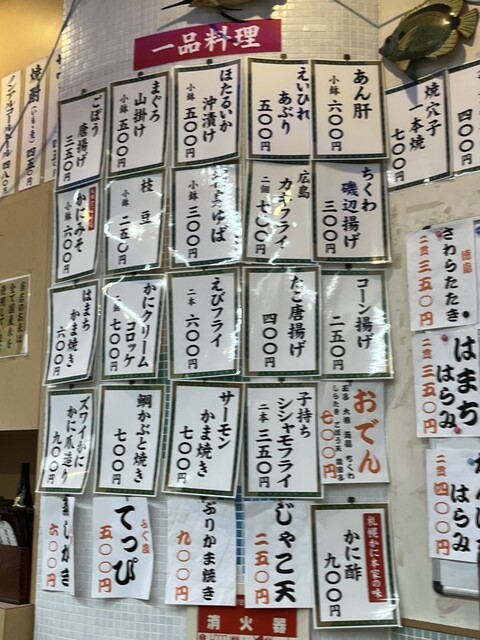 一品料理
あん肝
小鉢 六〇〇円
えいひれ
あぶり
五〇〇円
ほたるいか
沖漬け
小鉢 五〇〇円
まぐろ
山掛け
小鉢 五〇〇円
ごぼう
唐揚げ
三五〇円
ちくわ
磯辺揚げ
三〇〇円
広島
カキフライ
二個 七〇〇円
ゆば
小鉢 三〇〇円
枝豆
小鉢 二五〇円
かにみそ
小鉢 六〇〇円
コーン揚げ
二五〇円
たこ唐揚げ
四〇〇円
えびフライ
二本 六〇〇円
かにクリーム
コロッケ
七〇〇円
はまち
かま焼き
六〇〇円
おでん
玉子 大根 ちくわ
しらたき ごぼう天
七〇〇円
子持ち
シシャモフライ
二本 三五〇円
サーモン
かま焼き
七〇〇円
鯛かぶと焼き
七〇〇円
ズワイかに
かに爪造り
九〇〇円
札幌かに本家の味
かに酢
九〇〇円
じゃこ天
二五〇円
ぶりかま焼き
九〇〇円
てっぴ
五〇〇円
蒸しがき
六〇〇円
焼穴子
一本焼
七〇〇円
四〇〇円
徳島
さわらたたき
二貫 三五〇円
はまち
はらみ
二貫 三五〇円
はらみ
二貫 四〇〇円
焼酎
四五〇円
ノンアルコールビール
四八〇円
当店のお米は
全て国産米を
使用して
消火器